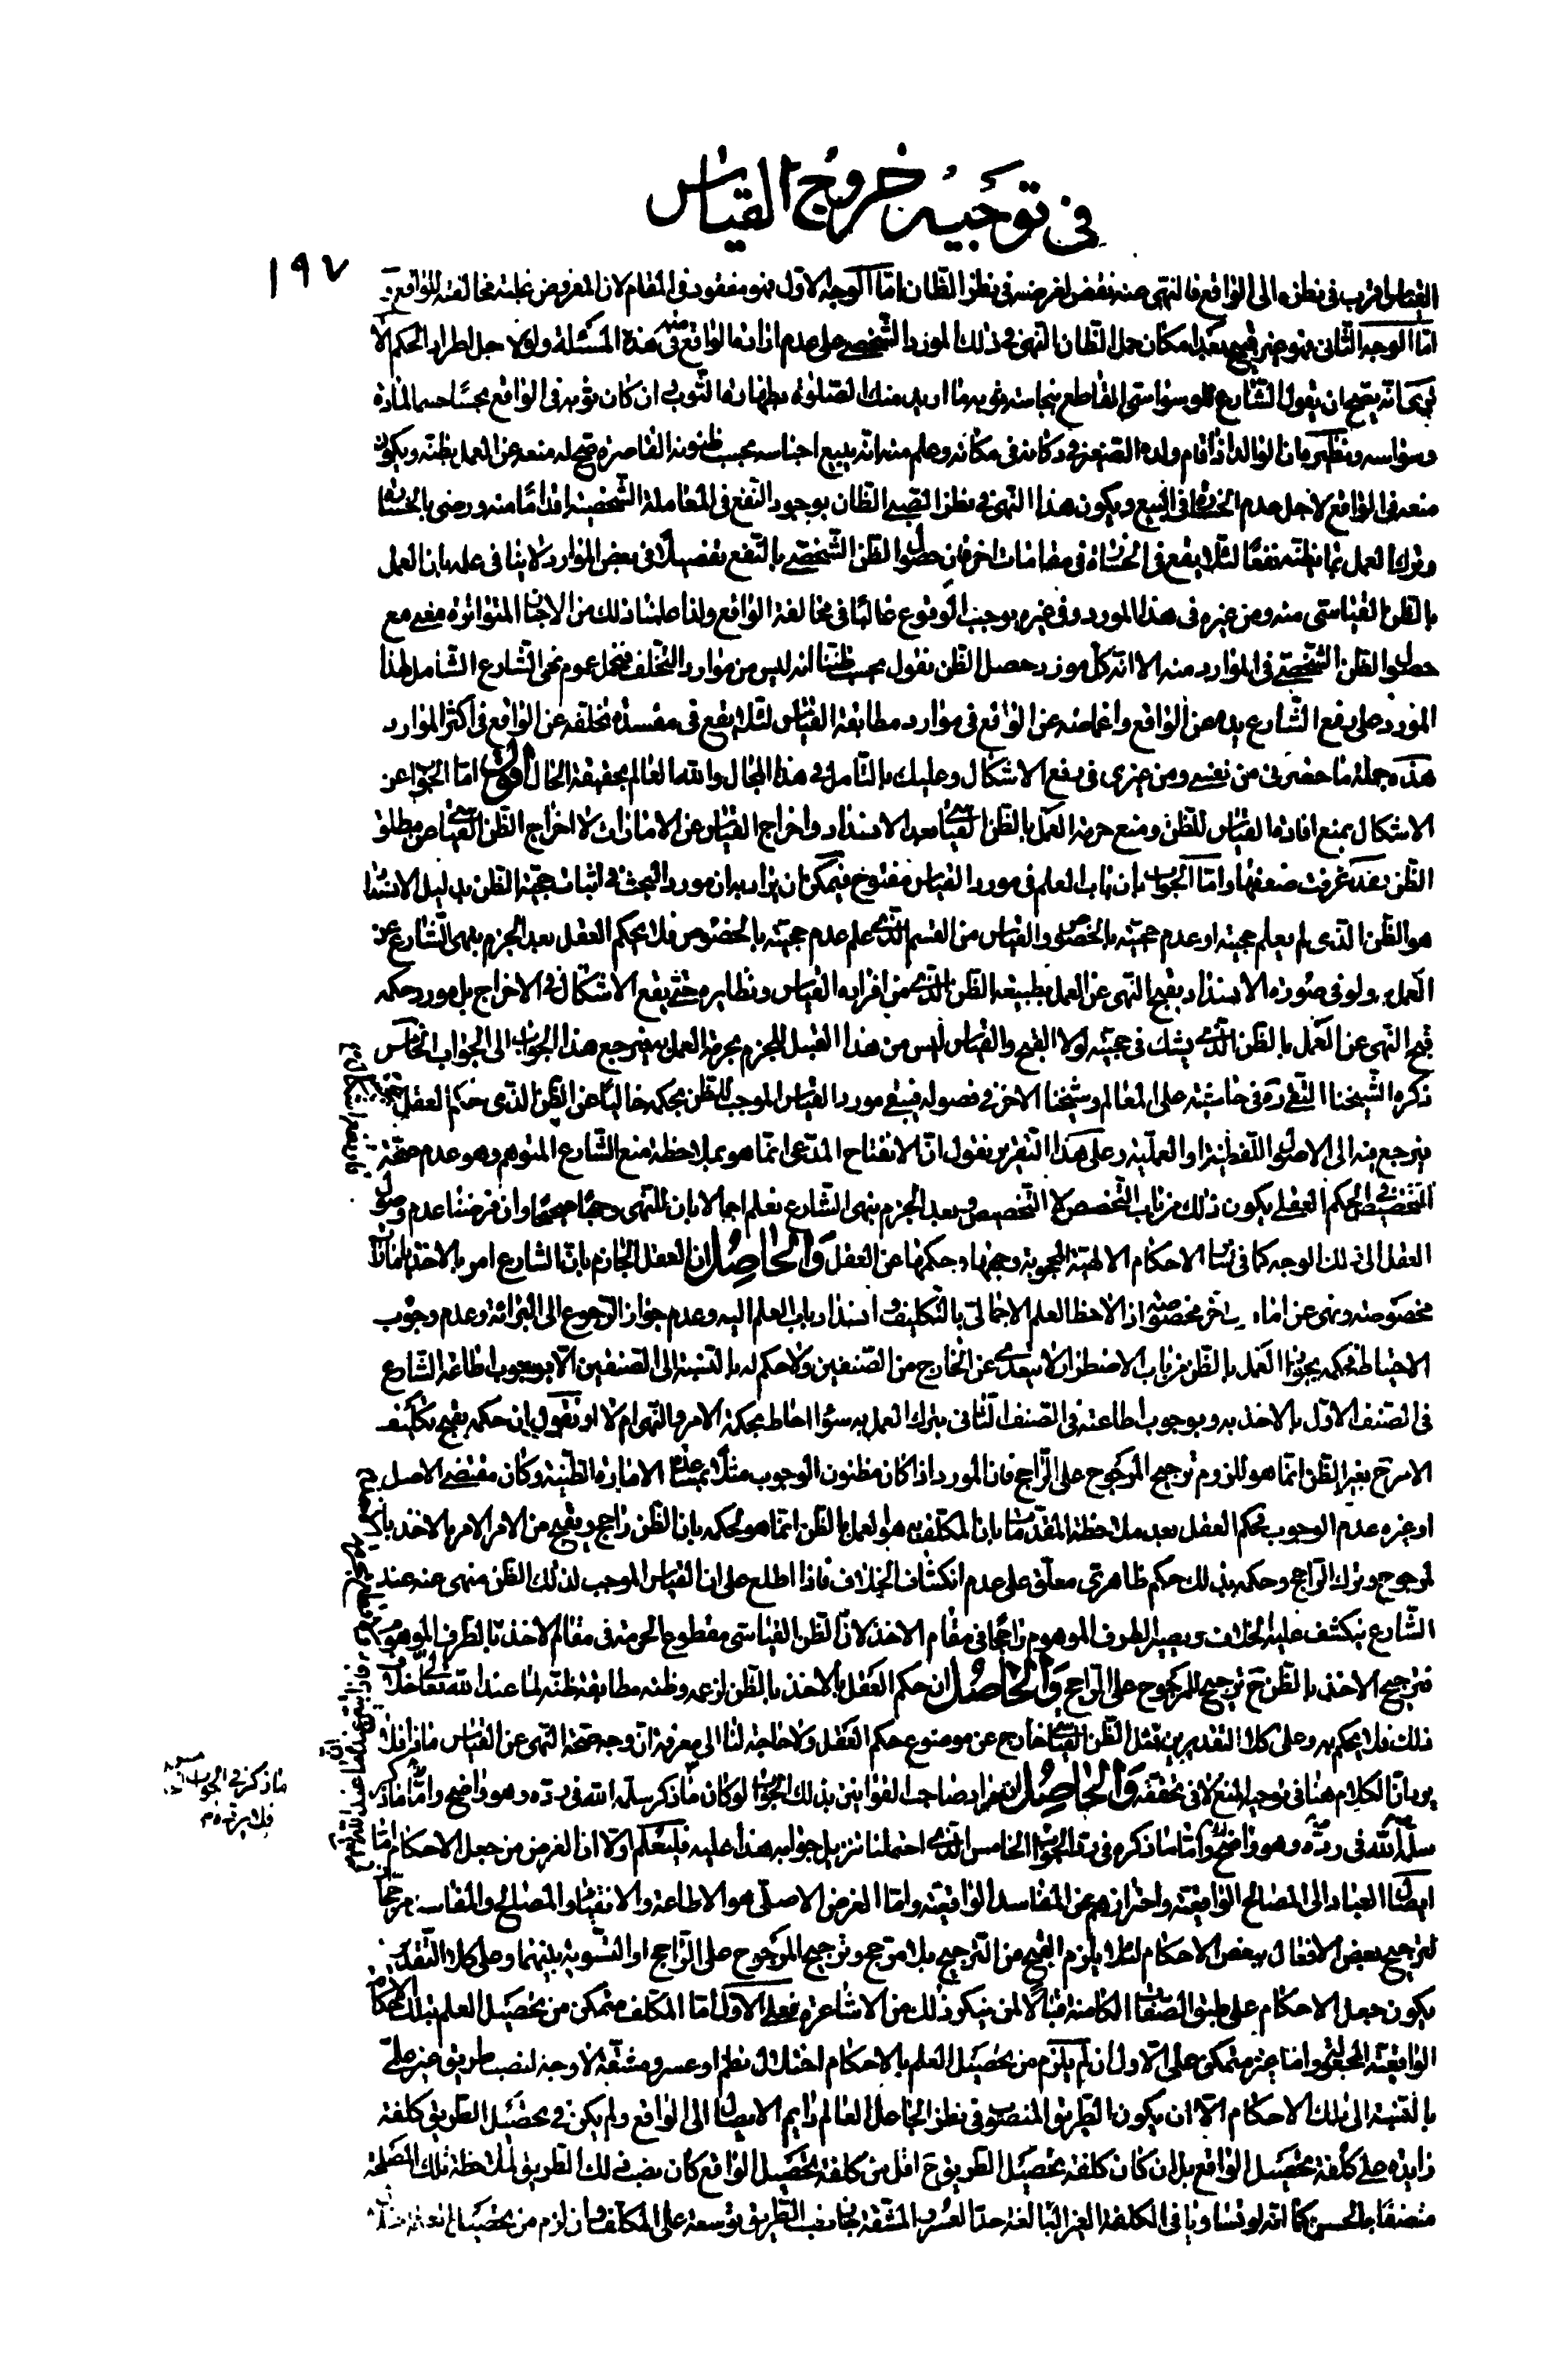 في توجيه خروج القياس
١٩٧
القياس اقرب في نظره الى الواقع فالنهي عنه نقض لغرضه في نظر الظان امّا الوجه الاوّل فهو مفقود في المقام لان المفروض غلبة مخالفته للواقع و
امّا الوجه الثاني فهو غير قبيح بعد امكان حمل الظان النهي في ذلك المورد الشخصي على عدم ارادة الواقع منه في هذه المسئلة ولو لاجل اطراد الحكم الا
ترى انه يصح ان يقول الشارع للوسواسي القاطع بنجاسة ثوبه ما اريد منك الصلوة بطهارة الثوب وان كان ثوبه في الواقع نجسًا حسما لمادة
وسواسه ونظيره ان الوالد اذا اقام ولده الصغير في دكانه في مكانه وعلم منه انه يبيع اجناسه بحسب ظنونه القاصرة صح له منعه عن العمل بظنه ويكون
منعه في الواقع لاجل عدم الخسارة في البيع ويكون هذا النهي في نظر الصبي الظان بوجود النفع في المعاملة الشخصية اقدامًا منه ورضى بالخسارة
وترك العمل بما يظنه نفعًا لئلا يقع في الخسارة في مقامات اخر فان حصول الظن الشخصي بالنفع تفصيلًا في بعض الموارد لا ينافي علمه بان العمل
بالظن القياسي منه ومن غيره في هذا المورد وفي غيره يوجب الوقوع غالبًا في مخالفة الواقع ولذا علمنا ذلك من الاخبار المتواترة معنى مع
حصول الظن الشخصي في الموارد منه الا انه كل مورد حصل الظن نقول بحسب ظننا انه ليس من موارد التخلف فنحمل عموم نهي الشارع الشامل لهذا
المورد على رفع الشارع يده عن الواقع واغماضه عن الواقع في موارد مطابقة القياس لئلا يقع في مفسدة تخلفه عن الواقع في اكثر الموارد
هذه جملة ما حضرني من نفسي ومن غيري في دفع الاشكال وعليك بالتامل في هذا المجال والله العالم بحقيقة الحال اقول امّا الجواب عن
الاشكال بمنع افادة القياس للظن ومنع حرمة العمل بالظن القياسي بعد الانسداد واخراج القياس عن الامارات لا اخراج الظن القياسي من مطلق
الظن فقد عرفت ضعفها وامّا الجواب بان باب العلم في مورد القياس مفتوح فيمكن ان يراد به ان مورد البحث في اثبات حجية الظن بدليل الانسداد
هو الظن الذي لم يعلم حجيته او عدم حجيته بالخصوص والقياس من القسم الذي علم عدم حجيته بالخصوص فلا يحكم العقل بعد الجزم بنهي الشارع عن
العمل به ولو في صورة الانسداد بقبح النهي عن العمل بطبيعة الظن الذي من افراده القياس ونظايره حتى يقع الاشكال في الاخراج بل مورد حكمه
قبح النهي عن العمل بالظن الذي يشك في حجيته لولا القبح والقياس ليس من هذا القبيل للجزم بحرمة العمل به فيرجع هذا الجواب الى الجواب الخامس
ذكره الشيخنا التقي ره في حاشيته على المعالم وشيخنا الاخر في فصوله فيبقى مورد القياس الموجب للظن بحكمه خاليًا عن الظن الذي حكم العقل
فيرجع فيه الى الاصول اللفظية او العملية وعلى هذا التقرير نقول انّ الانفتاح المدّعى انّما هو بملاحظة منع الشارع المتوهم وهو عدم صحة
التخصيص في الحكم العقلي يكون ذلك من باب التخصص لا التخصيص وبعد الجزم بنهي الشارع نعلم اجمالا بان للنهي وجهًا صحيحًا وان فرضنا عدم وصول
العقل الى ذلك الوجه كما في ساير الاحكام الالهية المحجوبة وجهها وحكمها عن العقل وَالحاصِل ان العقل الجازم بانّ الشارع امر بالاخذ بامارات
مخصوصة ونهى عن امارات اخر مخصوصة اذا لاحظ العلم الاجمالي بالتكليف وانسداد باب العلم اليه وعدم جواز الرجوع الى البرائة وعدم وجوب
الاحتياط فحكمه بجواز العمل بالظن من باب الاضطرار لا يتعدى عن الخارج من الصنفين ولا حكم له بالنسبة الى الصنفين الا بوجوب اطاعة الشارع
في الصنف الاوّل بالاخذ به وبوجوب اطاعته في الصنف الثاني بترك العمل به سواء احاط بحكمة الامر والنهي ام لا او نقول ان حكمه بقبح تكليف
الامر ح بغير الظن انّما هو للزوم ترجيح المرجوح على الراجح فان المورد اذا كان مظنون الوجوب مثلًا بمساعدة الامارة الظنية وكان مقتضى الاصل
او غيره عدم الوجوب فحكم العقل بعد ملاحظة المقدمات بان المكلف به هو العمل بالظن انّما هو لحكمه بان الظن راجح ويقبح من الامر الامر بالاخذ بالـ
لمرجوح وترك الراجح وحكمه بذلك حكم ظاهري معلق على عدم انكشاف الخلاف فاذا اطلع على ان القياس الموجب لذلك الظن منهي عنه عند
الشارع ينكشف عليه الخلاف ويصير الطرف الموهوم راجحًا في مقام الاخذ لانّ الظن القياسي مقطوع الحرمة في مقام الاخذ بالطرف الموهوم
فترجيح الاخذ بالظن ح ترجيح المرجوح على الراجح وَالحاصِل ان حكم العقل بالاخذ بالظن لزعمه وظنه مطابقة ظنه لما عند الله تعالى
ذلك فلا يحكم به وعلى كلا التقديرين فمثل الظن القياسي خارج عن موضوع حكم العقل ولا حاجة لنا الى معرفة انّ وجه صحة النهي عن القياس ماذا فلا
يرد بانّ الكلام هنا في توجيه المنع لا في تحققه وَالحاصِل ان مراد صاحب القوانين بذلك الجواب لو كان ما ذكر
سلمه الله في ردّه وهو واضح وامّا ما ذكره في رد الجواب الخامس الذي احتملنا تنزيل جوابه هذا عليه فليعلم اولا ان الغرض من جعل الاحكام امّا
ايصال العباد الى المصالح الواقعية واحترازهم عن المفاسد الواقعية وامّا الغرض الاصلي هو الاطاعة والانقياد والمصالح والمفاسد مرجحا
لترجيح بعض الافعال ببعض الاحكام لئلا يلزم القبيح من الترجيح بلا مرجح وترجيح المرجوح على الراجح او التسوية بينهما وعلى كلا التقديرين
يكون جعل الاحكام على طبق الصفات الكامنة قبالًا لمن ينكر ذلك من الاشاعرة فعلى الاوّل امّا المكلف متمكن من تحصيل العلم بتلك الاحكام
الواقعية المجعولة وامّا غير متمكن على الاول ان لم يلزم من تحصيل العلم بالاحكام اختلال نظم او عسر ومشقة لا وجه لنصب طريق غير علمي
بالنسبة الى تلك الاحكام الّا ان يكون الطريق المنصوب في نظر الجاعل العالم دايم الايصال الى الواقع ولم يكن في تحصيل الطريق كلفة
زايدة على كلفة تحصيل الواقع بل ان كان كلفة تحصيل الطريق ح اقل من كلفة تحصيل الواقع كان نصب ذلك الطريق لملاحظة تلك المصلحة
متصفًا بالحسن كما انّه لو تساويا في الكلفة الغير البالغة حدّ العسر والمشقة جاز نصب الطريق توسعة على المكلف وان لزم من تحصيل
ما ذكر في الجواب
فلا يرد